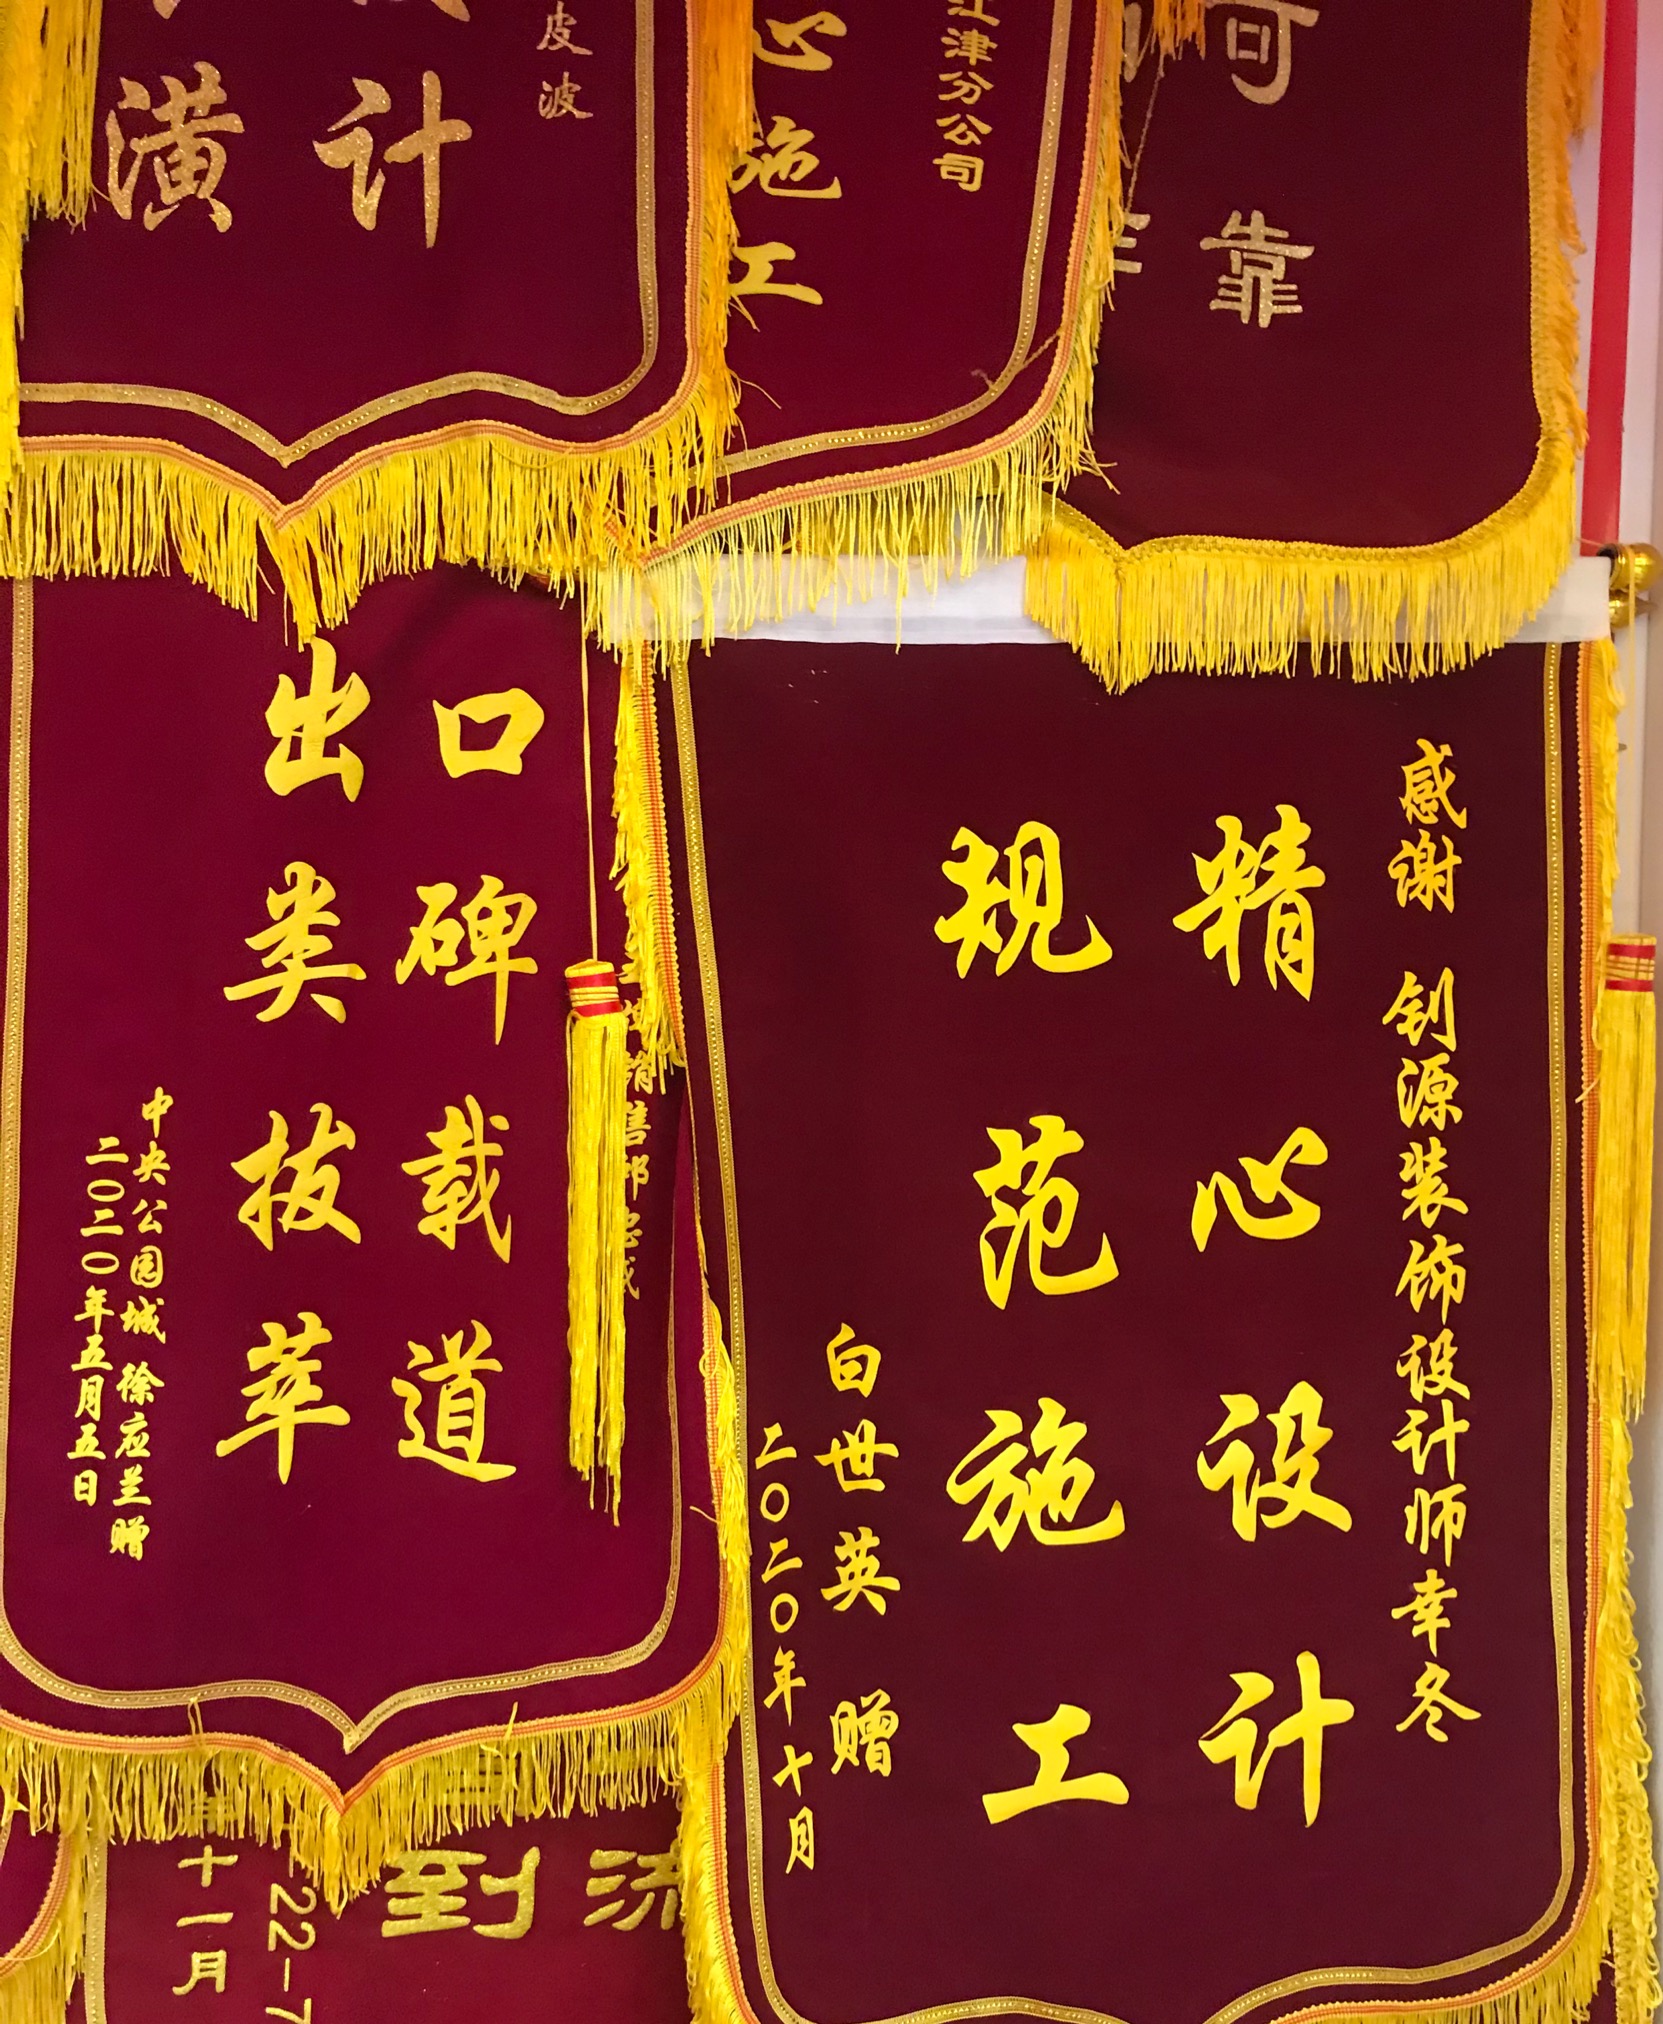 皮波
计
潢
江津分公司
心施工
可靠
口碑载道
出类拔萃
中央公园城 徐应兰 赠
二〇二〇年五月五日
销售部
感谢 钊源装饰设计师幸冬
精心设计
规范施工
白世英 赠
二〇二〇年十月
流
到
22-7
十一月